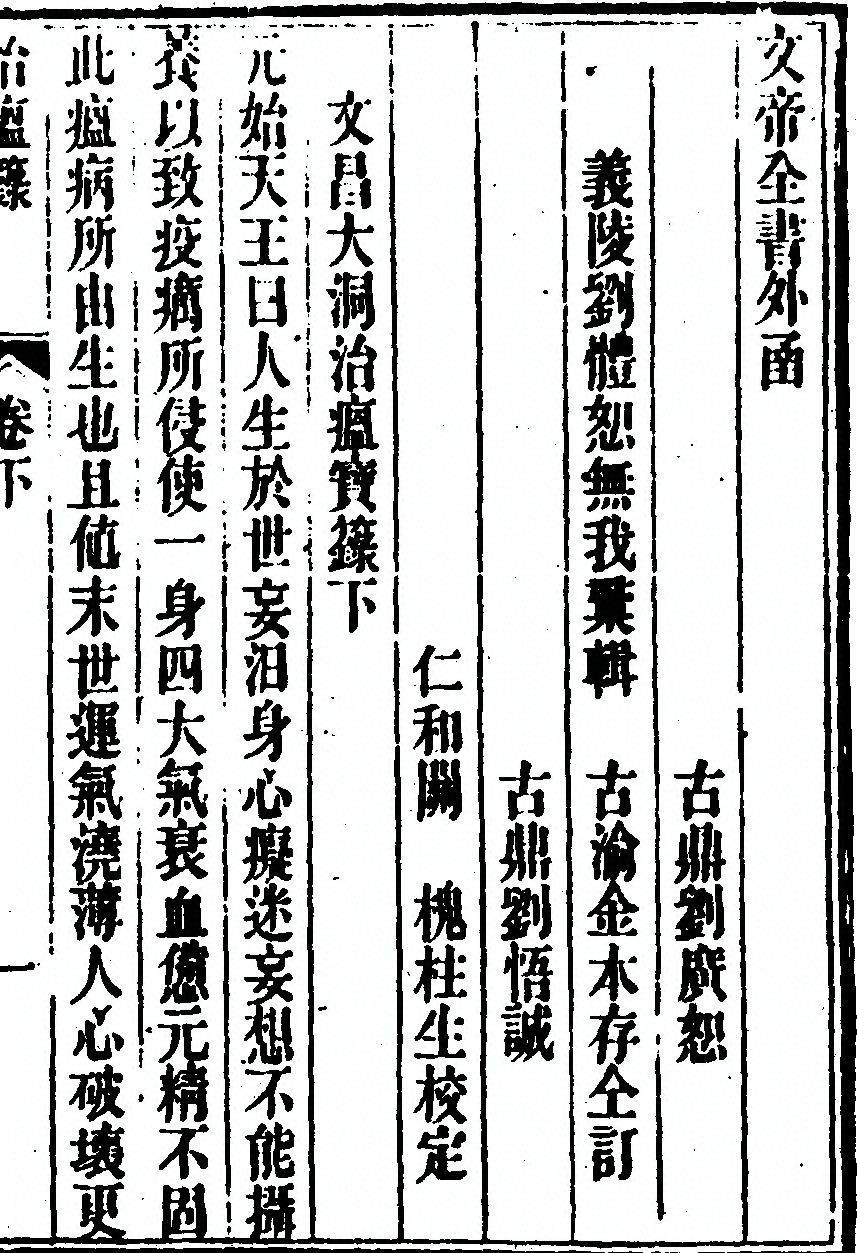 文帝全書外函
古鼎劉廣恕
義陵劉體恕無我彚輯　古渝金本存仝訂
古鼎劉悟誠
仁和關　槐柱生校定
文昌大洞治瘟寶籙下
元始天王曰人生於世妄汩身心癡迷妄想不能攝
養以致疫癘所侵使一身四大氣衰血憊元精不固
此瘟病所由生也且値末世運氣澆薄人心破壞更
治瘟籙　卷下　一